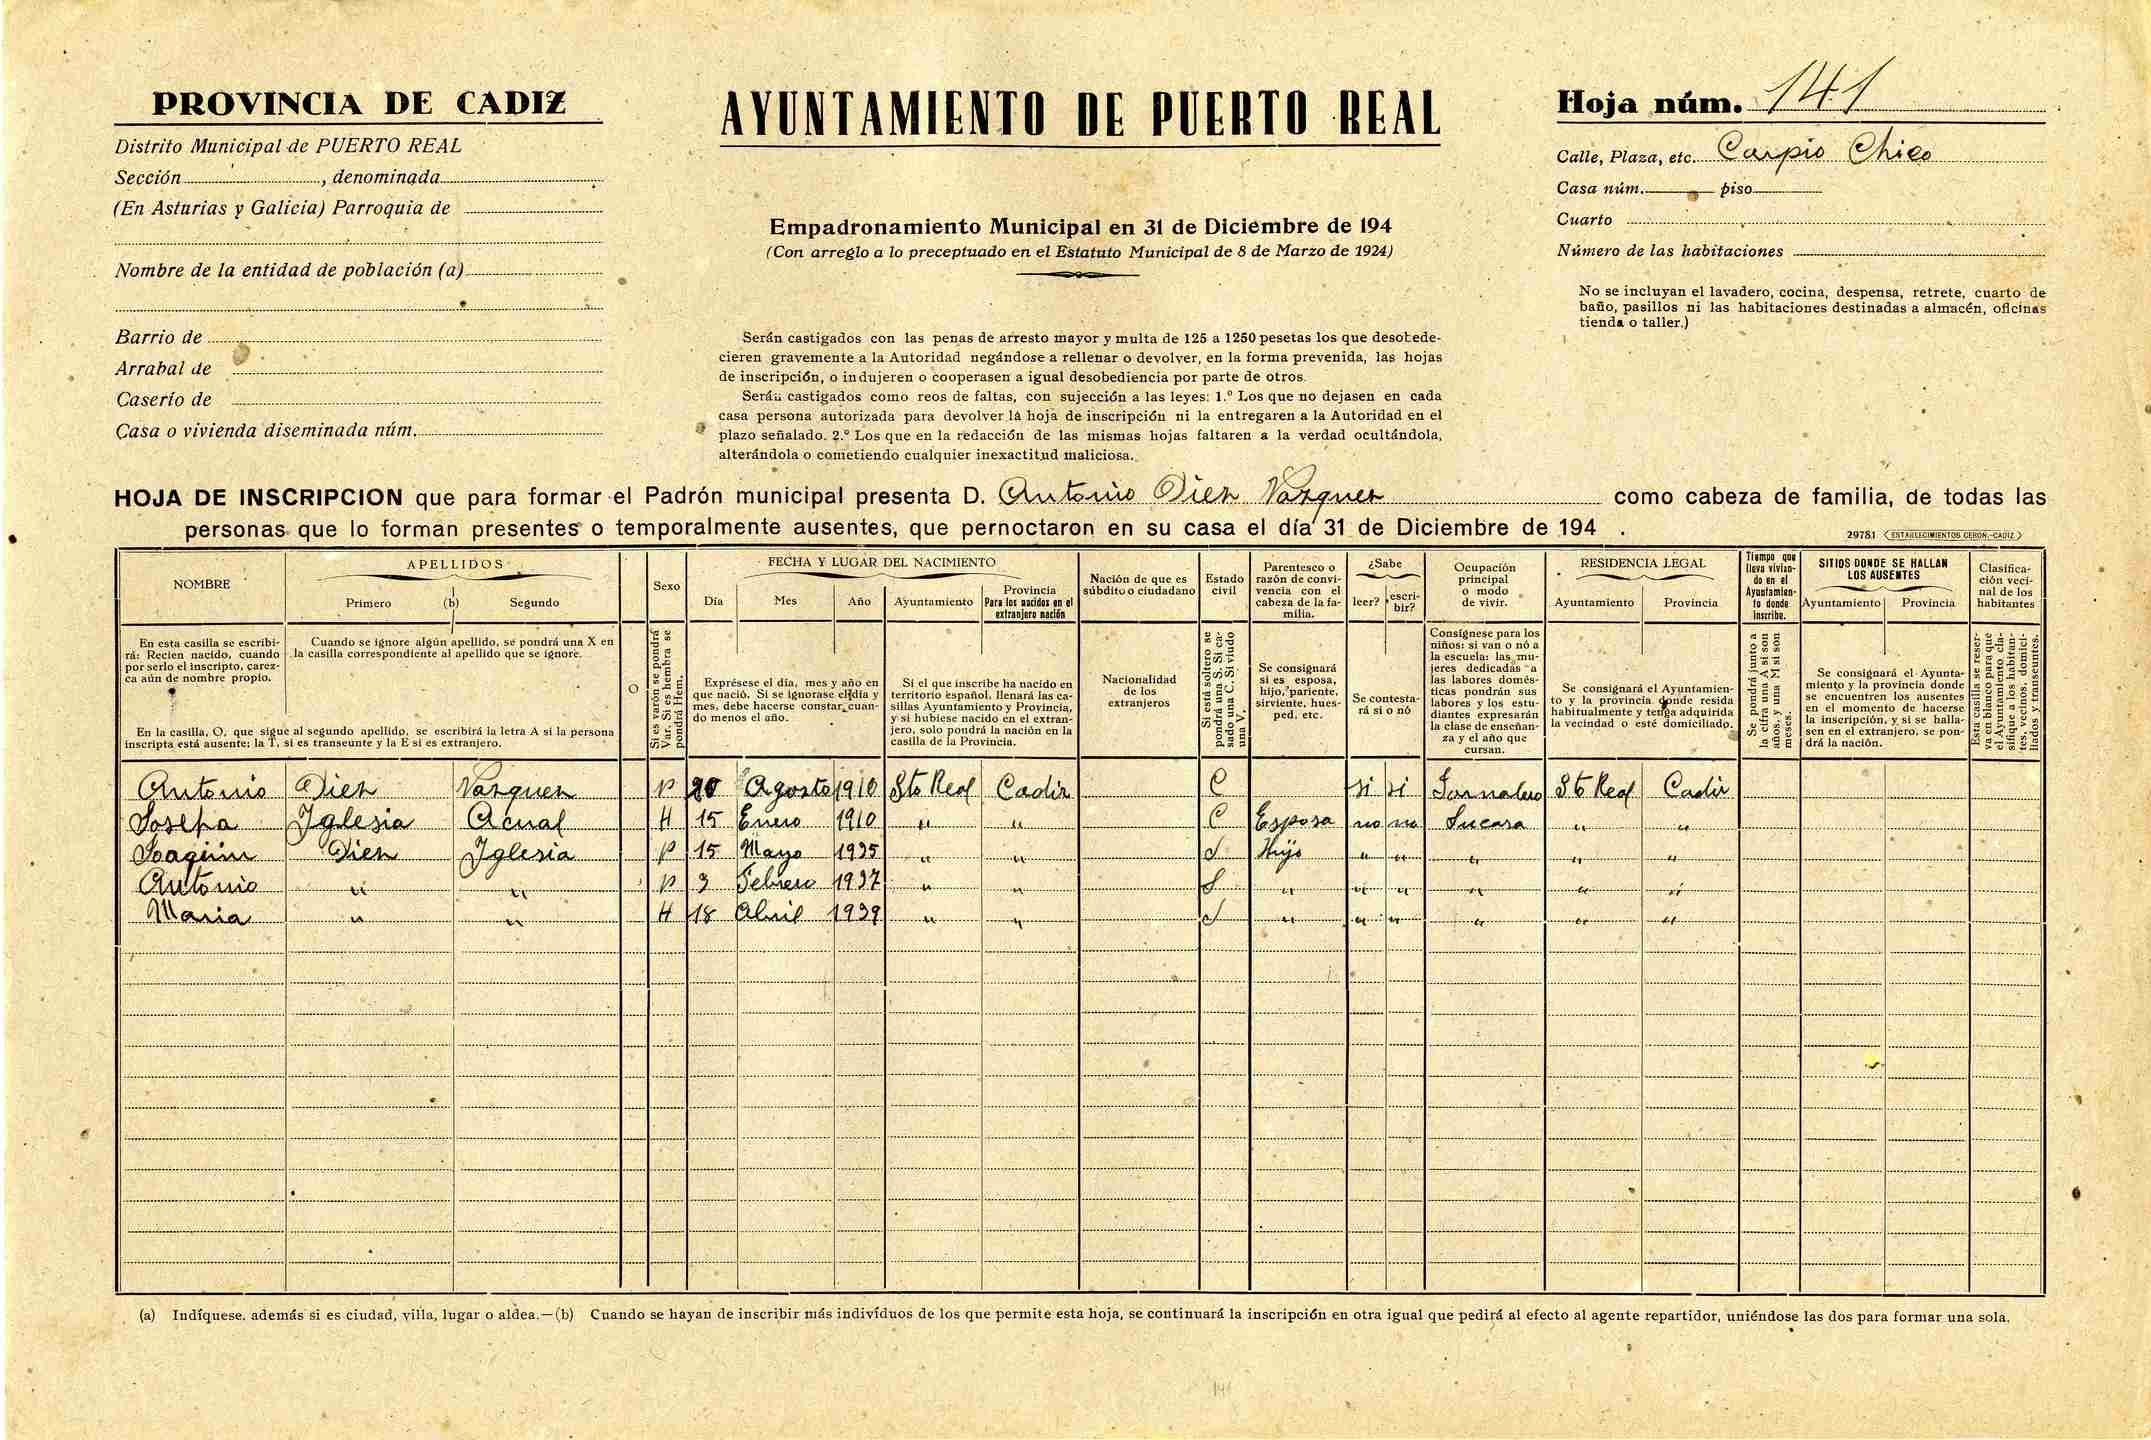 PROVINCIA DE CADIZ
Distrito Municipal de PUERTO REAL
Sección , denominada
(En Asturias y Galicia) Parroquia de
Nombre de la entidad de población (a)
Barrio de
Arrabal de
Caserío de
Casa o vivienda diseminada núm.
AYUNTAMIENTO DE PUERTO REAL
Empadronamiento Municipal en 31 de Diciembre de 194
(Con arreglo a lo preceptuado en el Estatuto Municipal de 8 de Marzo de 1924)
Serán castigados con las penas de arresto mayor y multa de 125 a 1250 pesetas los que desobede-
cieren gravemente a la Autoridad negándose a rellenar o devolver, en la forma prevenida, las hojas
de inscripción, o indujeren o cooperasen a igual desobediencia por parte de otros.
Serán castigados como reos de faltas, con sujección a las leyes: 1.º Los que no dejasen en cada
casa persona autorizada para devolver la hoja de inscripción ni la entregaren a la Autoridad en el
plazo señalado. 2.º Los que en la redacción de las mismas hojas faltaren a la verdad ocultándola,
alterándola o cometiendo cualquier inexactitud maliciosa.
Hoja núm. 141
Calle, Plaza, etc. Carpio Chico
Casa núm. piso
Cuarto
Número de las habitaciones
No se incluyan el lavadero, cocina, despensa, retrete, cuarto de
baño, pasillos ni las habitaciones destinadas a almacén, oficinas
tienda o taller.)
HOJA DE INSCRIPCION que para formar el Padrón municipal presenta D. Antonio Diez Vazquez como cabeza de familia, de todas las
personas que lo forman presentes o temporalmente ausentes, que pernoctaron en su casa el día 31 de Diciembre de 194 .
29781 ESTABLECIMIENTOS CERON.-CADIZ
NOMBRE
APELLIDOS
Primero (b) Segundo
O
Sexo
FECHA Y LUGAR DEL NACIMIENTO
Día Mes Año Ayuntamiento
Provincia
Para los nacidos en el
extranjero nación
Nación de que es
súbdito o ciudadano
Estado
civil
Parentesco o
razón de convi-
vencia con el
cabeza de la fa-
milia.
¿Sabe
leer? escri-
bir?
Ocupación
principal
o modo
de vivir.
RESIDENCIA LEGAL
Ayuntamiento Provincia
Tiempo que
lleva vivien-
do en el
Ayuntamien-
to donde
inscribe.
SITIOS DONDE SE HALLAN
LOS AUSENTES
Ayuntamiento Provincia
Clasifica-
ción veci-
nal de los
habitantes
En esta casilla se escribi-
rá: Recien nacido, cuando
por serlo el inscripto, carez-
ca aún de nombre propio.
Cuando se ignore algún apellido, se pondrá una X en
la casilla correspondiente al apellido que se ignore.
En la casilla, O, que sigue al segundo apellido, se escribirá la letra A si la persona
inscripta está ausente; la T, si es transeunte y la E si es extranjero.
Si es varón se pondrá
Var. Si es hembra se
pondrá Hem.
Exprésese el día, mes y año en
que nació. Si se ignorase el día y
mes, debe hacerse constar, cuan-
do menos el año.
Si el que inscribe ha nacido en
territorio español, llenará las ca-
sillas Ayuntamiento y Provincia,
y si hubiese nacido en el extran-
jero, solo pondrá la nación en la
casilla de la Provincia.
Nacionalidad
de los
extranjeros
Si está soltero se
pondrá una S. Si ca-
sado una C. Si viudo
una V.
Se consignará
si es esposa,
hijo, pariente,
sirviente, hues-
ped, etc.
Se contesta-
rá si o nó
Consígnese para los
niños: si van o nó a
la escuela: las mu-
jeres dedicadas a
las labores domés-
ticas pondrán sus
labores y los estu-
diantes expresarán
la clase de enseñan-
za y el año que
cursan.
Se consignará el Ayuntamien-
to y la provincia donde resida
habitualmente y tenga adquirida
la vecindad o esté domiciliado.
Se pondrá junto a
la cifra una A si son
años, y una M si son
meses.
Se consignará el Ayunta-
miento y la provincia donde
se encuentren los ausentes
en el momento de hacerse
la inscripción, y si se halla-
sen en el extranjero, se pon-
drá la nación.
Esta casilla se reser-
va en blanco para que
el Ayuntamiento cla-
sifique a los habitan-
tes, vecinos, domici-
liados y transeuntes.
Antonio Diez Vazquez V 20 Agosto 1910 Pto Real Cadiz C si si Jornalero Pto Real Cadiz
Josefa Iglesia H 15 Enero 1910 " " C Esposa no no Su casa " "
Joaquin Diez Iglesia V 15 Mayo 1935 " " S Hijo " " " " "
Antonio " " V 3 Febrero 1937 " " S " " " " " "
Maria " " H 18 Abril 1939 " " S " " " " " "
(a) Indíquese, además si es ciudad, villa, lugar o aldea.—(b) Cuando se hayan de inscribir más individuos de los que permite esta hoja, se continuará la inscripción en otra igual que pedirá al efecto al agente repartidor, uniéndose las dos para formar una sola.
141